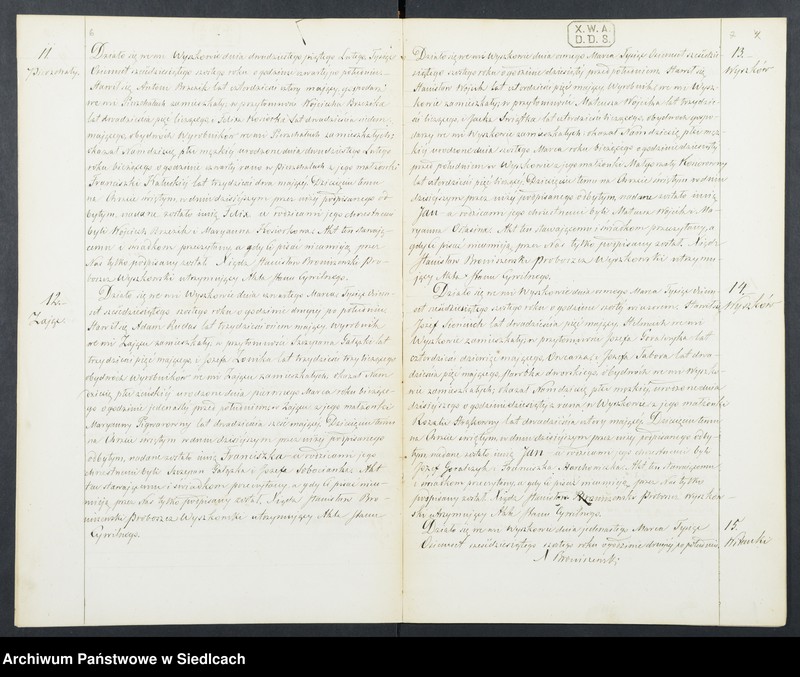 11.
Działo się we wsi Wyszkowie dnia dwudziestego piątego Lutego Tysiąc
Ośmset sześćdziesiątego szóstego roku o godzinie czwartej po południu.
Stawił się Antoni Brzezik lat czterdzieści cztery mający, gospodarz
we wsi zamieszkały, w przytomności Wojciecha
lat dwadzieścia pięć liczącego i Felixa lat dwadzieścia siedem
mającego, obydwóch Wyrobników we wsi zamieszkałych i
okazał Nam dziecię płci męskiej urodzone dnia dwudziestego Lutego
roku bieżącego o godzinie czwartej rano w z jego małżonki
Franciszki lat trzydzieści dwa mającej. Dziecięciu temu
na Chrzcie świętym, w dniu dzisiejszym przez niżej podpisanego od-
bytym, nadane zostało imię Felix a rodzicami jego chrzestnemi
byli Wojciech i Maryanna Akt ten stawają-
cemu i świadkom przeczytany, a gdy ci pisać nieumieją przez
Nas tylko podpisany został. Xiądz Stanisław Broniszewski Pro-
boszcz Wyszkowski utrzymujący Akta Stanu Cywilnego.
12.
Zając.
Działo się we wsi Wyszkowie dnia czwartego Marca Tysiąc Ośm-
set sześćdziesiątego szóstego roku o godzinie drugiej po południu.
Stawił się Adam lat trzydzieści ośm mający, wyrobnik
we wsi Zając zamieszkały, w przytomności Szczepana Gałązki lat
trzydzieści pięć mającego, i Józefa lat trzydzieści trzy liczącego
obydwóch Wyrobników we wsi Zając zamieszkałych, i okazał Nam
dziecię płci żeńskiej urodzone dnia pierwszego Marca roku bieżące-
go o godzinie jedenastej przed południem w Zającu z jego małżonki
Maryanny lat dwadzieścia sześć mającej. Dziecięciu temu
na Chrzcie świętym w dniu dzisiejszym przez niżej podpisanego
odbytym, nadane zostało imię Franciszka a rodzicami jego
chrzestnemi byli Szczepan Gałązka i Józefa Akt
ten stawającemu i świadkom przeczytany, a gdy ci pisać nieu-
mieją, przez Nas tylko podpisany został. Xiądz Stanisław Bro-
niszewski Proboszcz Wyszkowski utrzymujący Akta Stanu
Cywilnego.
X.W.A.
D.D.S.
13.
Wyszków
Działo się we wsi Wyszkowie dnia ósmego Marca Tysiąc Ośmset sześćdzie-
siątego szóstego roku o godzinie dziesiątej przed południem. Stawił się
Stanisław Wójcik lat czterdzieści pięć mający Wyrobnik we wsi Wysz-
kowie zamieszkały, w przytomności Mateusza Wójcika lat trzydzie-
ści liczącego i Jacka Świątka lat czterdzieści liczącego, obydwóch gospo-
darzy we wsi Wyszkowie zamieszkałych; okazał Nam dziecię płci męz-
kiej urodzone dnia szóstego Marca roku bieżącego o godzinie dziesiątej
przed południem w Wyszkowie z jego małżonki Małgorzaty
lat czterdzieści pięć liczącej. Dziecięciu temu na Chrzcie świętym w dniu
dzisiejszym przez niżej podpisanego odbytym, nadane zostało imię
Jan a rodzicami jego chrzestnemi byli Mateusz Wójcik i Ma-
ryanna Akt ten stawającemu i świadkom przeczytany, a
gdy ci pisać nieumieją, przez Nas tylko podpisany został. Xiądz
Stanisław Broniszewski Proboszcz Wyszkowski utrzymu-
jący Akta Stanu Cywilnego.
14.
Wyszków
Działo się we wsi Wyszkowie dnia ósmego Marca Tysiąc Ośm-
set sześćdziesiątego szóstego roku o godzinie szóstej wieczorem. Stawił się
Józef lat dwadzieścia pięć mający we wsi
Wyszkowie zamieszkały, w przytomności Józefa Goralczyka lat
czterdzieści dziewięć mającego, Owczarza i Józefa lat dwa-
dzieścia pięć mającego, Parobka dworskiego, obydwóch we wsi Wyszko-
wie zamieszkałych; okazał Nam dziecię płci męzkiej, urodzone dnia
dzisiejszego o godzinie dziesiątej z rana w Wyszkowie z jego małżonki
Rozalii lat dwadzieścia cztery mającej. Dziecięciu temu
na Chrzcie świętym, w dniu dzisiejszym przez niżej podpisanego odby-
tym, nadane zostało imię Jan a rodzicami jego chrzestnemi byli
Józef Goralczyk i Akt ten stawającemu
i świadkom przeczytany, a gdy ci pisać nieumieją, przez Nas tylko
podpisany został. Xiądz Stanisław Broniszewski Proboszcz Wyszkow-
ski utrzymujący Akta Stanu Cywilnego.
15.
Działo się we wsi Wyszkowie dnia jedenastego Marca Tysiąc
Ośmset sześćdziesiątego szóstego roku o godzinie drugiej po południu.
X Broniszewski
Archiwum Państwowe w Siedlcach